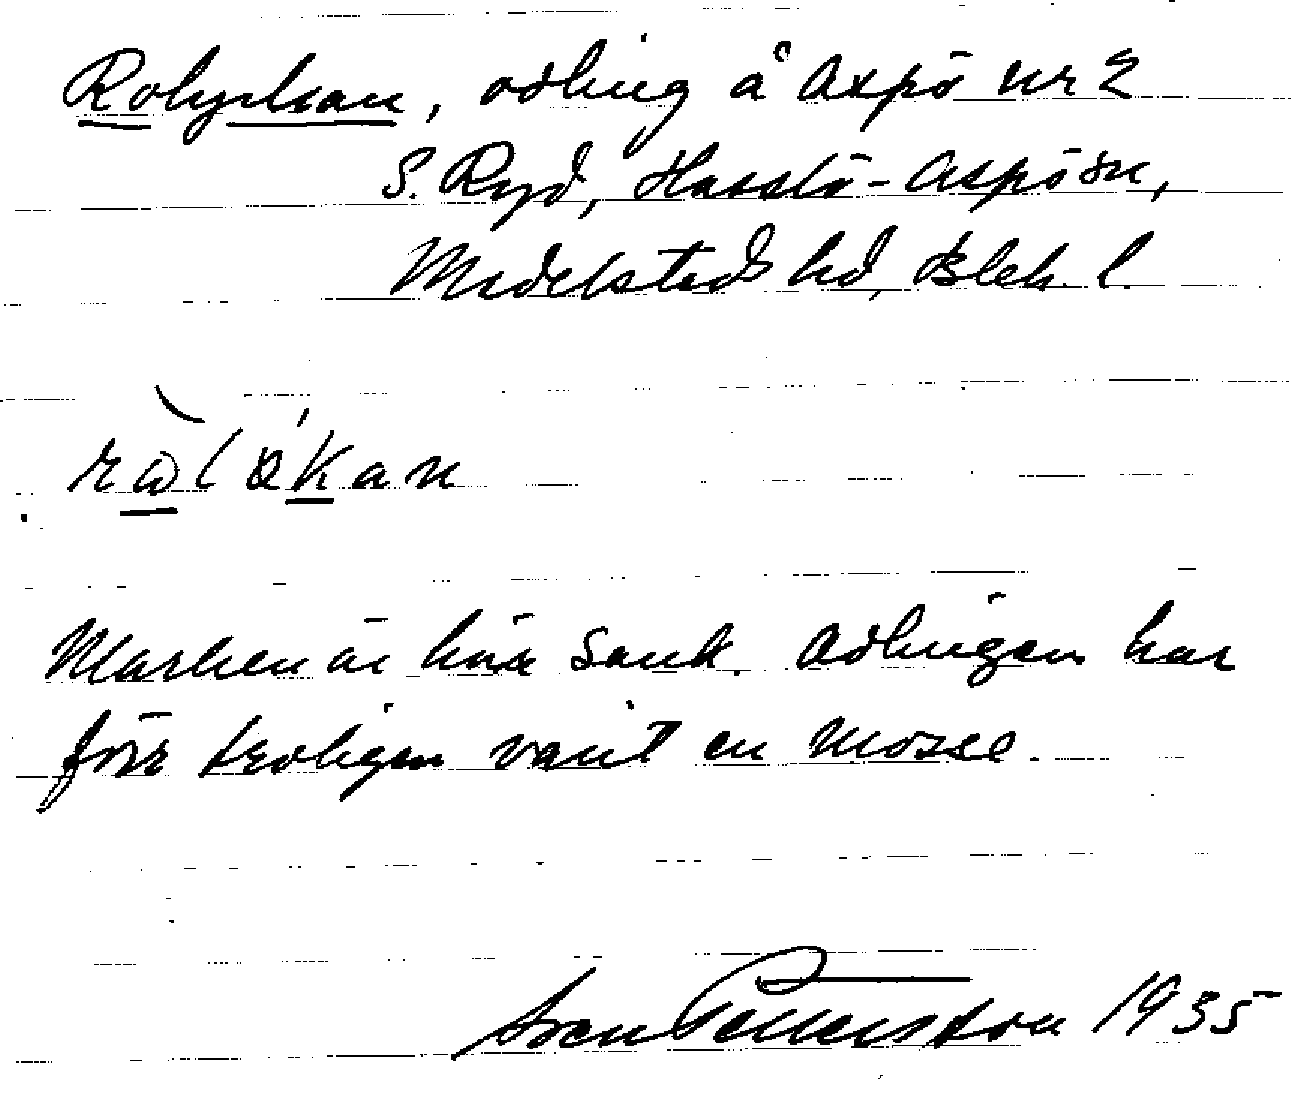 Rolyckan, odling å Aspö nr 2
S. Ryd, Hasslö-Aspö sn,
Medelsteds hd, Blek. l.
Marken är hära sank. Odlingen har
förr troligen varit en mosse.
Sven Pettersson 1935